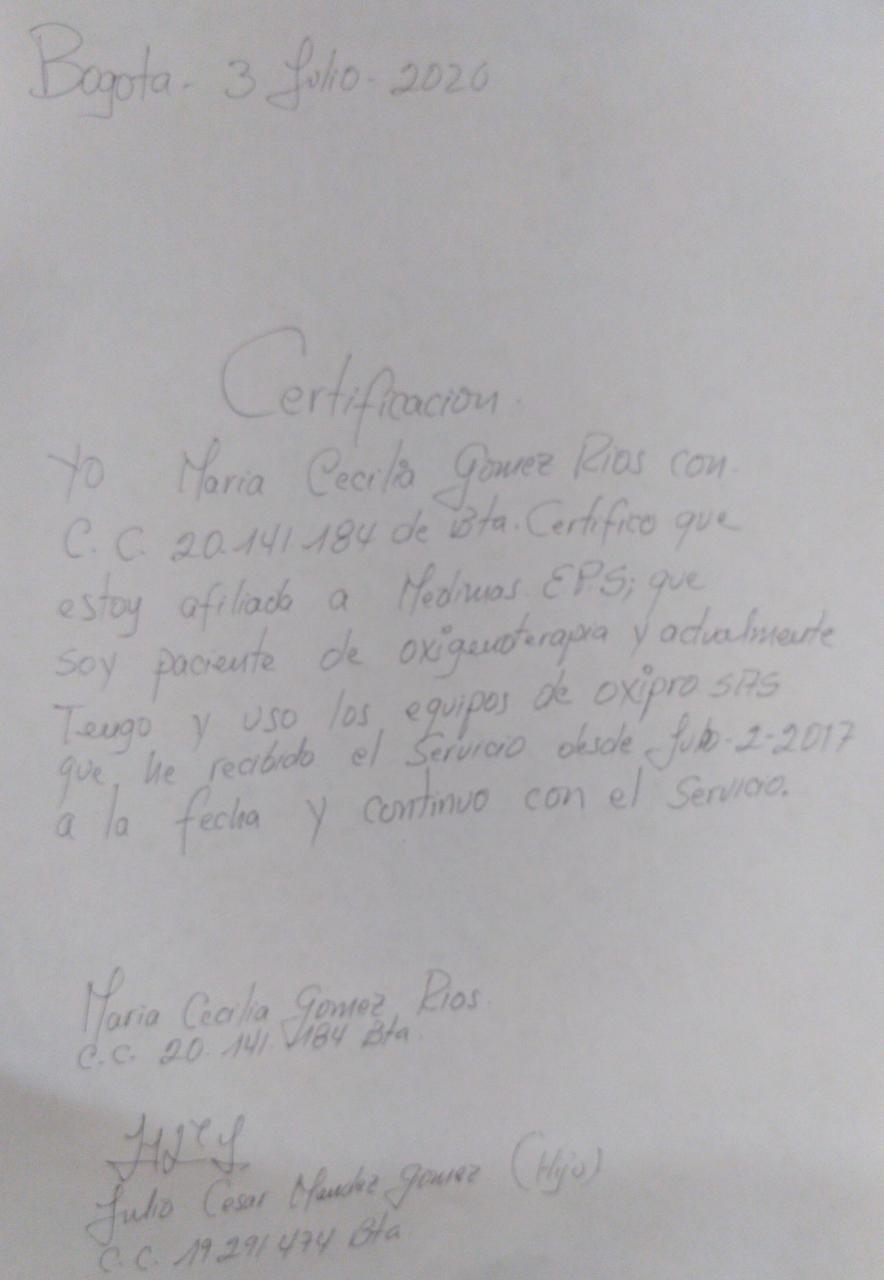 Bogota - 3 Julio - 2020
Certificacion.
Yo Maria Cecilia Gomez Rios con.
C. C. 20.141.184 de Bta. Certifico que
estoy afiliada a Medimas EPS; que
soy paciente de oxigenoterapia y actualmente
Tengo y uso los equipos de oxipro SAS
que he recibido el Servicio desde Julio-2-2017
a la fecha y continuo con el Servicio.
Maria Cecilia Gomez Rios.
C.C. 20.141.184 Bta.
Julio Cesar Mendez Gomez (Hijo)
C.C. 19291474 Bta.